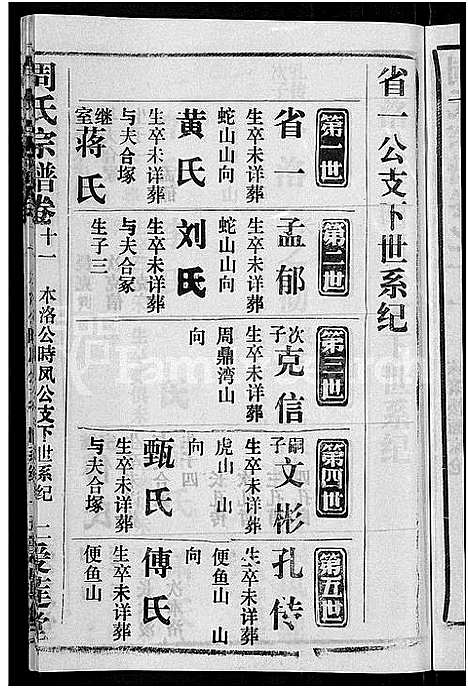 省一公支下世系纪
第一世
省一
生卒未详葬
蛇山山向
黄氏
生卒未详葬
与夫合塚
继室
蒋氏
第二世
孟郁
生卒未详葬
蛇山山向
刘氏
生卒未详葬
与夫合冢
生子三
第三世
次子
克信
生卒未详葬
周鼎湾山
向
第四世
嗣子
文彬
生卒未详葬
虎山 山
向
甄氏
生卒未详葬
与夫合塚
第五世
孔传
生卒未详葬
便鱼山 山
向
傅氏
生卒未详葬
便鱼山
周氏宗谱卷十一 木洛公時凤公支下世系纪 二爱莲堂